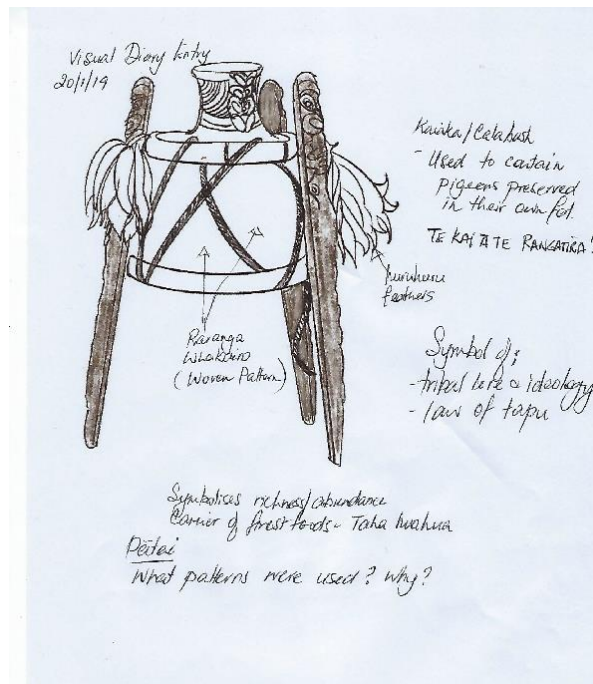 Visual Diary Entry
20/1/19
Kaiaka/Calabash
- Used to contain
pigeons preserved
in their own fat.
TE KAI A TE RANGATIRA!
huruhuru
feathers
Raranga
Whakairo
(Woven Pattern)
Symbol of;
- tribal lore & ideology
- law of tapu
Symbolises richness/abundance
Carrier of finest foods - Taha huahua
Pātai
What patterns were used? Why?